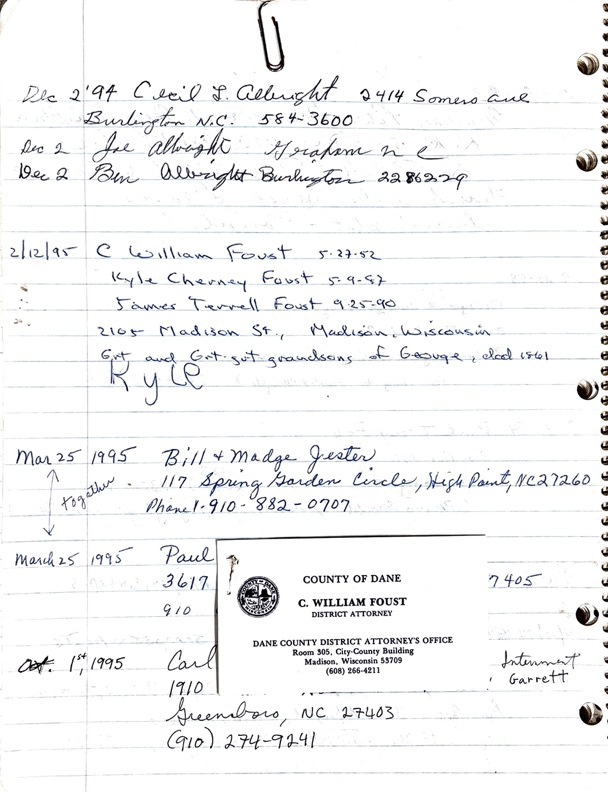 Dec 2 '94 Cecil L. Albright 2414 Somers ave
Burlington N.C. 584-3600
Dec 2 Joe Albright Graham N C
Dec 2 Ben Albright Burlington 2286229
2/12/95 C William Foust 5-27-52
Kyle Cherney Foust 5-9-87
James Terrell Foust 9-25-90
2105 Madison St., Madison, Wisconsin
Grt and Grt-grt grandsons of George, died 1861
Kyle
Mar 25 1995 Bill + Madge Jester
together. 117 Spring Garden Circle, High Point, NC 27260
Phone 1-910-882-0707
March 25 1995 Paul
3617 7405
910
COUNTY OF DANE
C. WILLIAM FOUST
DISTRICT ATTORNEY
DANE COUNTY DISTRICT ATTORNEY'S OFFICE
Room 305, City-County Building
Madison, Wisconsin 53709
(608) 266-4211
Oct. 1st, 1995 Carl Interment
1910 Garrett
Greensboro, NC 27403
(910) 274-9241